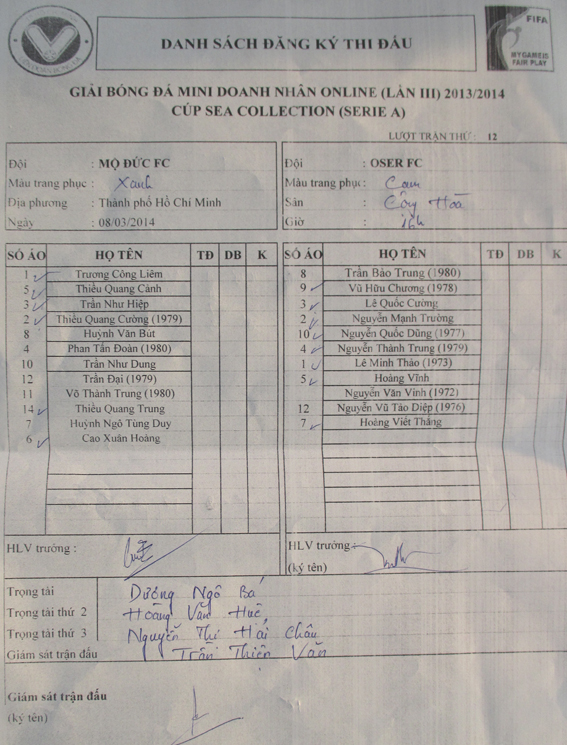 DANH SÁCH ĐĂNG KÝ THI ĐẤU
FIFA
MY GAME IS
FAIR PLAY
GIẢI BÓNG ĐÁ MINI DOANH NHÂN ONLINE (LẦN III) 2013/2014
CÚP SEA COLLECTION (SERIE A)
LƯỢT TRẬN THỨ: 12
Đội : MỘ ĐỨC FC
Màu trang phục : Xanh
Địa phương : Thành phố Hồ Chí Minh
Ngày : 08/03/2014
Đội : OSER FC
Màu trang phục: Cam
Sân : Cộng Hoà
Giờ :
SỐ ÁO HỌ TÊN TĐ DB K
1 Trương Công Liêm
5 Thiều Quang Cảnh
3 Trần Như Hiệp
2 Thiều Quang Cường (1979)
8 Huỳnh Văn Bút
4 Phan Tấn Đoàn (1980)
10 Trần Như Dung
12 Trần Đại (1979)
11 Võ Thành Trung (1980)
14 Thiều Quang Trung
7 Huỳnh Ngô Tùng Duy
6 Cao Xuân Hoàng
SỐ ÁO HỌ TÊN TĐ DB K
8 Trần Bảo Trung (1980)
9 Vũ Hữu Chương (1978)
3 Lê Quốc Cường
2 Nguyễn Mạnh Trường
10 Nguyễn Quốc Dũng (1977)
4 Nguyễn Thành Trung (1979)
1 Lê Minh Thảo (1973)
5 Hoàng Vĩnh
Nguyễn Văn Vinh (1972)
12 Nguyễn Vũ Tảo Diệp (1976)
7 Hoàng Viết Thắng
HLV trưởng :
HLV trưởng
(ký tên)
Trọng tài Dương Ngô Bá
Trọng tài thứ 2 Hoàng Văn Huế
Trọng tài thứ 3 Nguyễn Thị Hải Châu
Giám sát trận đấu Trần Thiện Văn
Giám sát trận đấu
(ký tên)